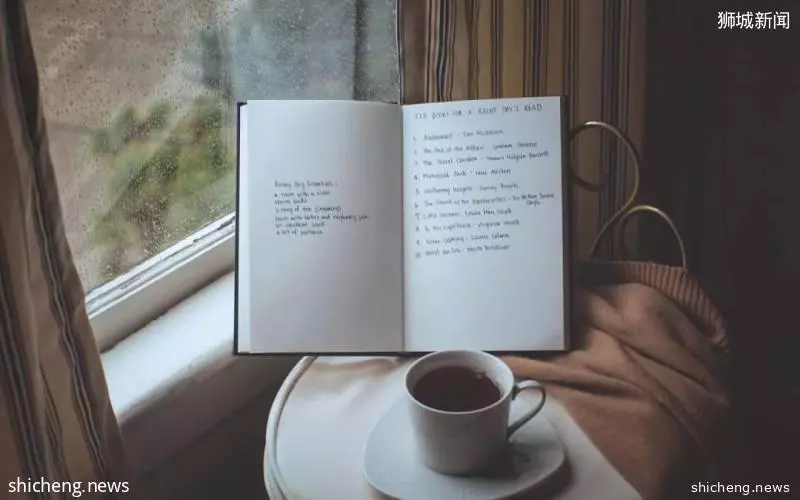 狮城新闻
Rainy Day Essentials:
a room with a view
warm socks
a mug of tea
toast with butter and raspberry jam
an excellent book
a bit of patience
TEN BOOKS FOR A RAINY DAY'S READ
1. Atonement - Ian McEwan
2. The End of the Affair - Graham Greene
3. The Secret Garden - Frances Hodgson Burnett
4. Mansfield Park - Jane Austen
5. Wuthering Heights - Emily Brontë
6. The Hound of the Baskervilles - Sir Arthur Conan Doyle
7. Little Women - Louisa May Alcott
8. To the Lighthouse - Virginia Woolf
9. Home Cooking - Laurie Colwin
10. Hotel du Lac - Anita Brookner
shicheng.news
shicheng.news